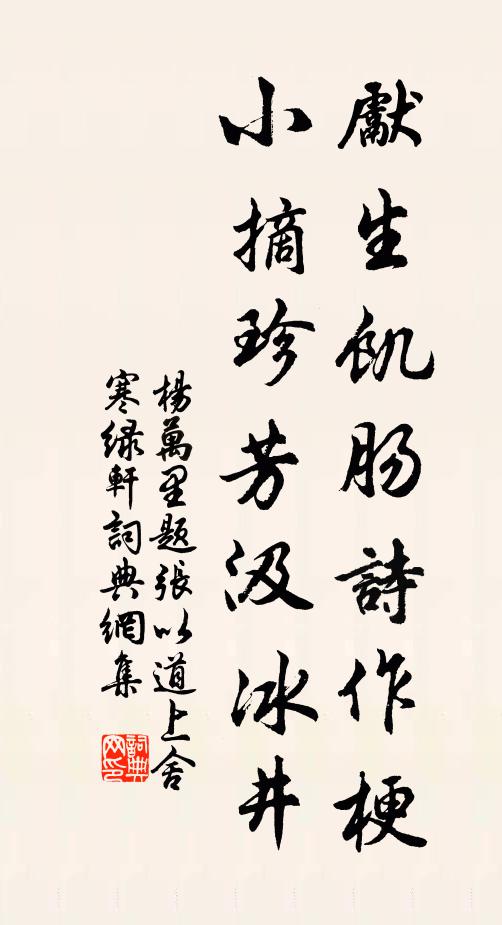 獻生飢肠詩作梗
小摘珍芳汲冰井
楊萬里题張以道上舍
寒绿軒詞典網集
詞典网印